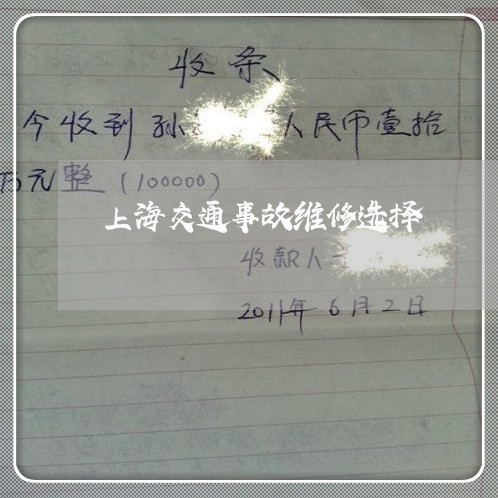 收条
今收到孙 人民币壹拾
万元整（100000）
上海交通事故维修选择
收款人
2011年6月2日